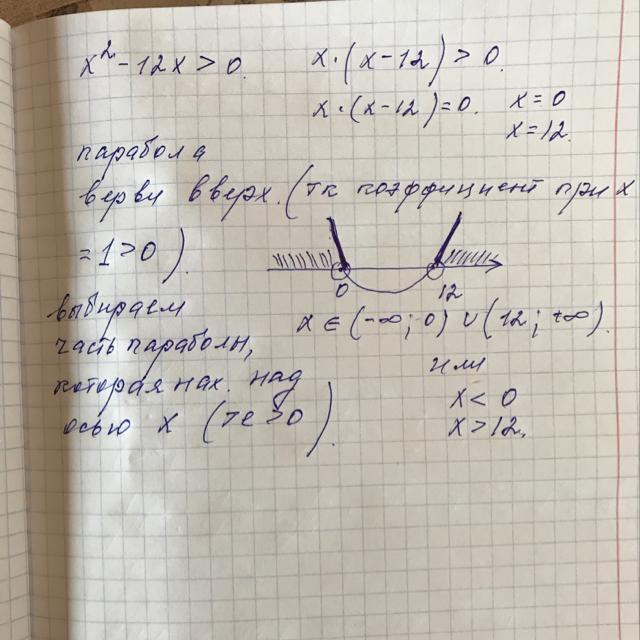 x² - 12x > 0. x · (x - 12) > 0.
x · (x - 12) = 0. x = 0
x = 12.
парабола
ветви вверх. (тк коэффициент при x
= 1 > 0).
0 12
выбираем
часть параболы,
которая нах. над
осью x (те > 0).
x ∈ (-∞; 0) ∪ (12; +∞).
или
x < 0
x > 12.